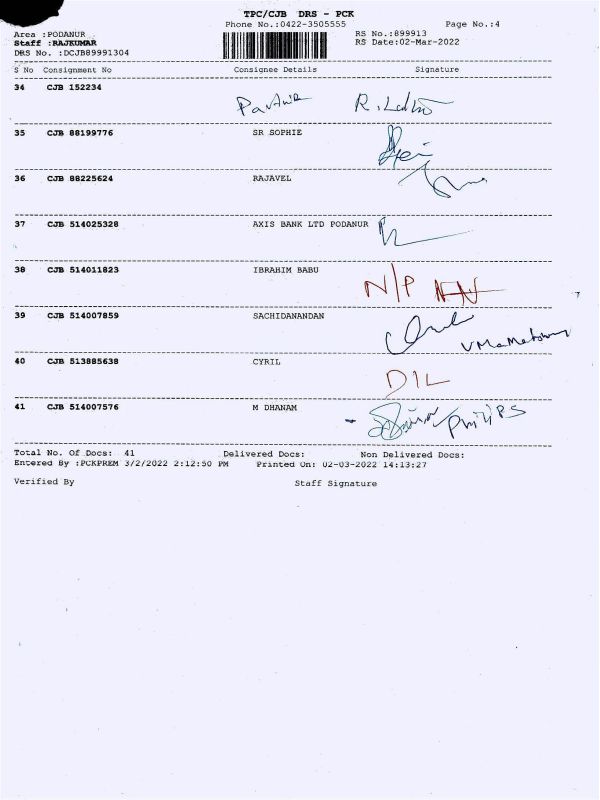 TPC/CJB DRS - PCK
Phone No.:0422-3505555 Page No.:4
Area :PODANUR RS No.:899913
Staff :RAJKUMAR RS Date:02-Mar-2022
DRS No. :DCJB89991304
S No Consignment No Consignee Details Signature
34 CJB 152234
35 CJB 88199776 SR SOPHIE
36 CJB 88225624 RAJAVEL
37 CJB 514025328 AXIS BANK LTD PODANUR
38 CJB 514011823 IBRAHIM BABU N/P
39 CJB 514007859 SACHIDANANDAN
40 CJB 513885638 CYRIL D/L
41 CJB 514007576 M DHANAM
Total No. Of Docs: 41 Delivered Docs: Non Delivered Docs:
Entered By :PCKPREM 3/2/2022 2:12:50 PM Printed On: 02-03-2022 14:13:27
Verified By Staff Signature